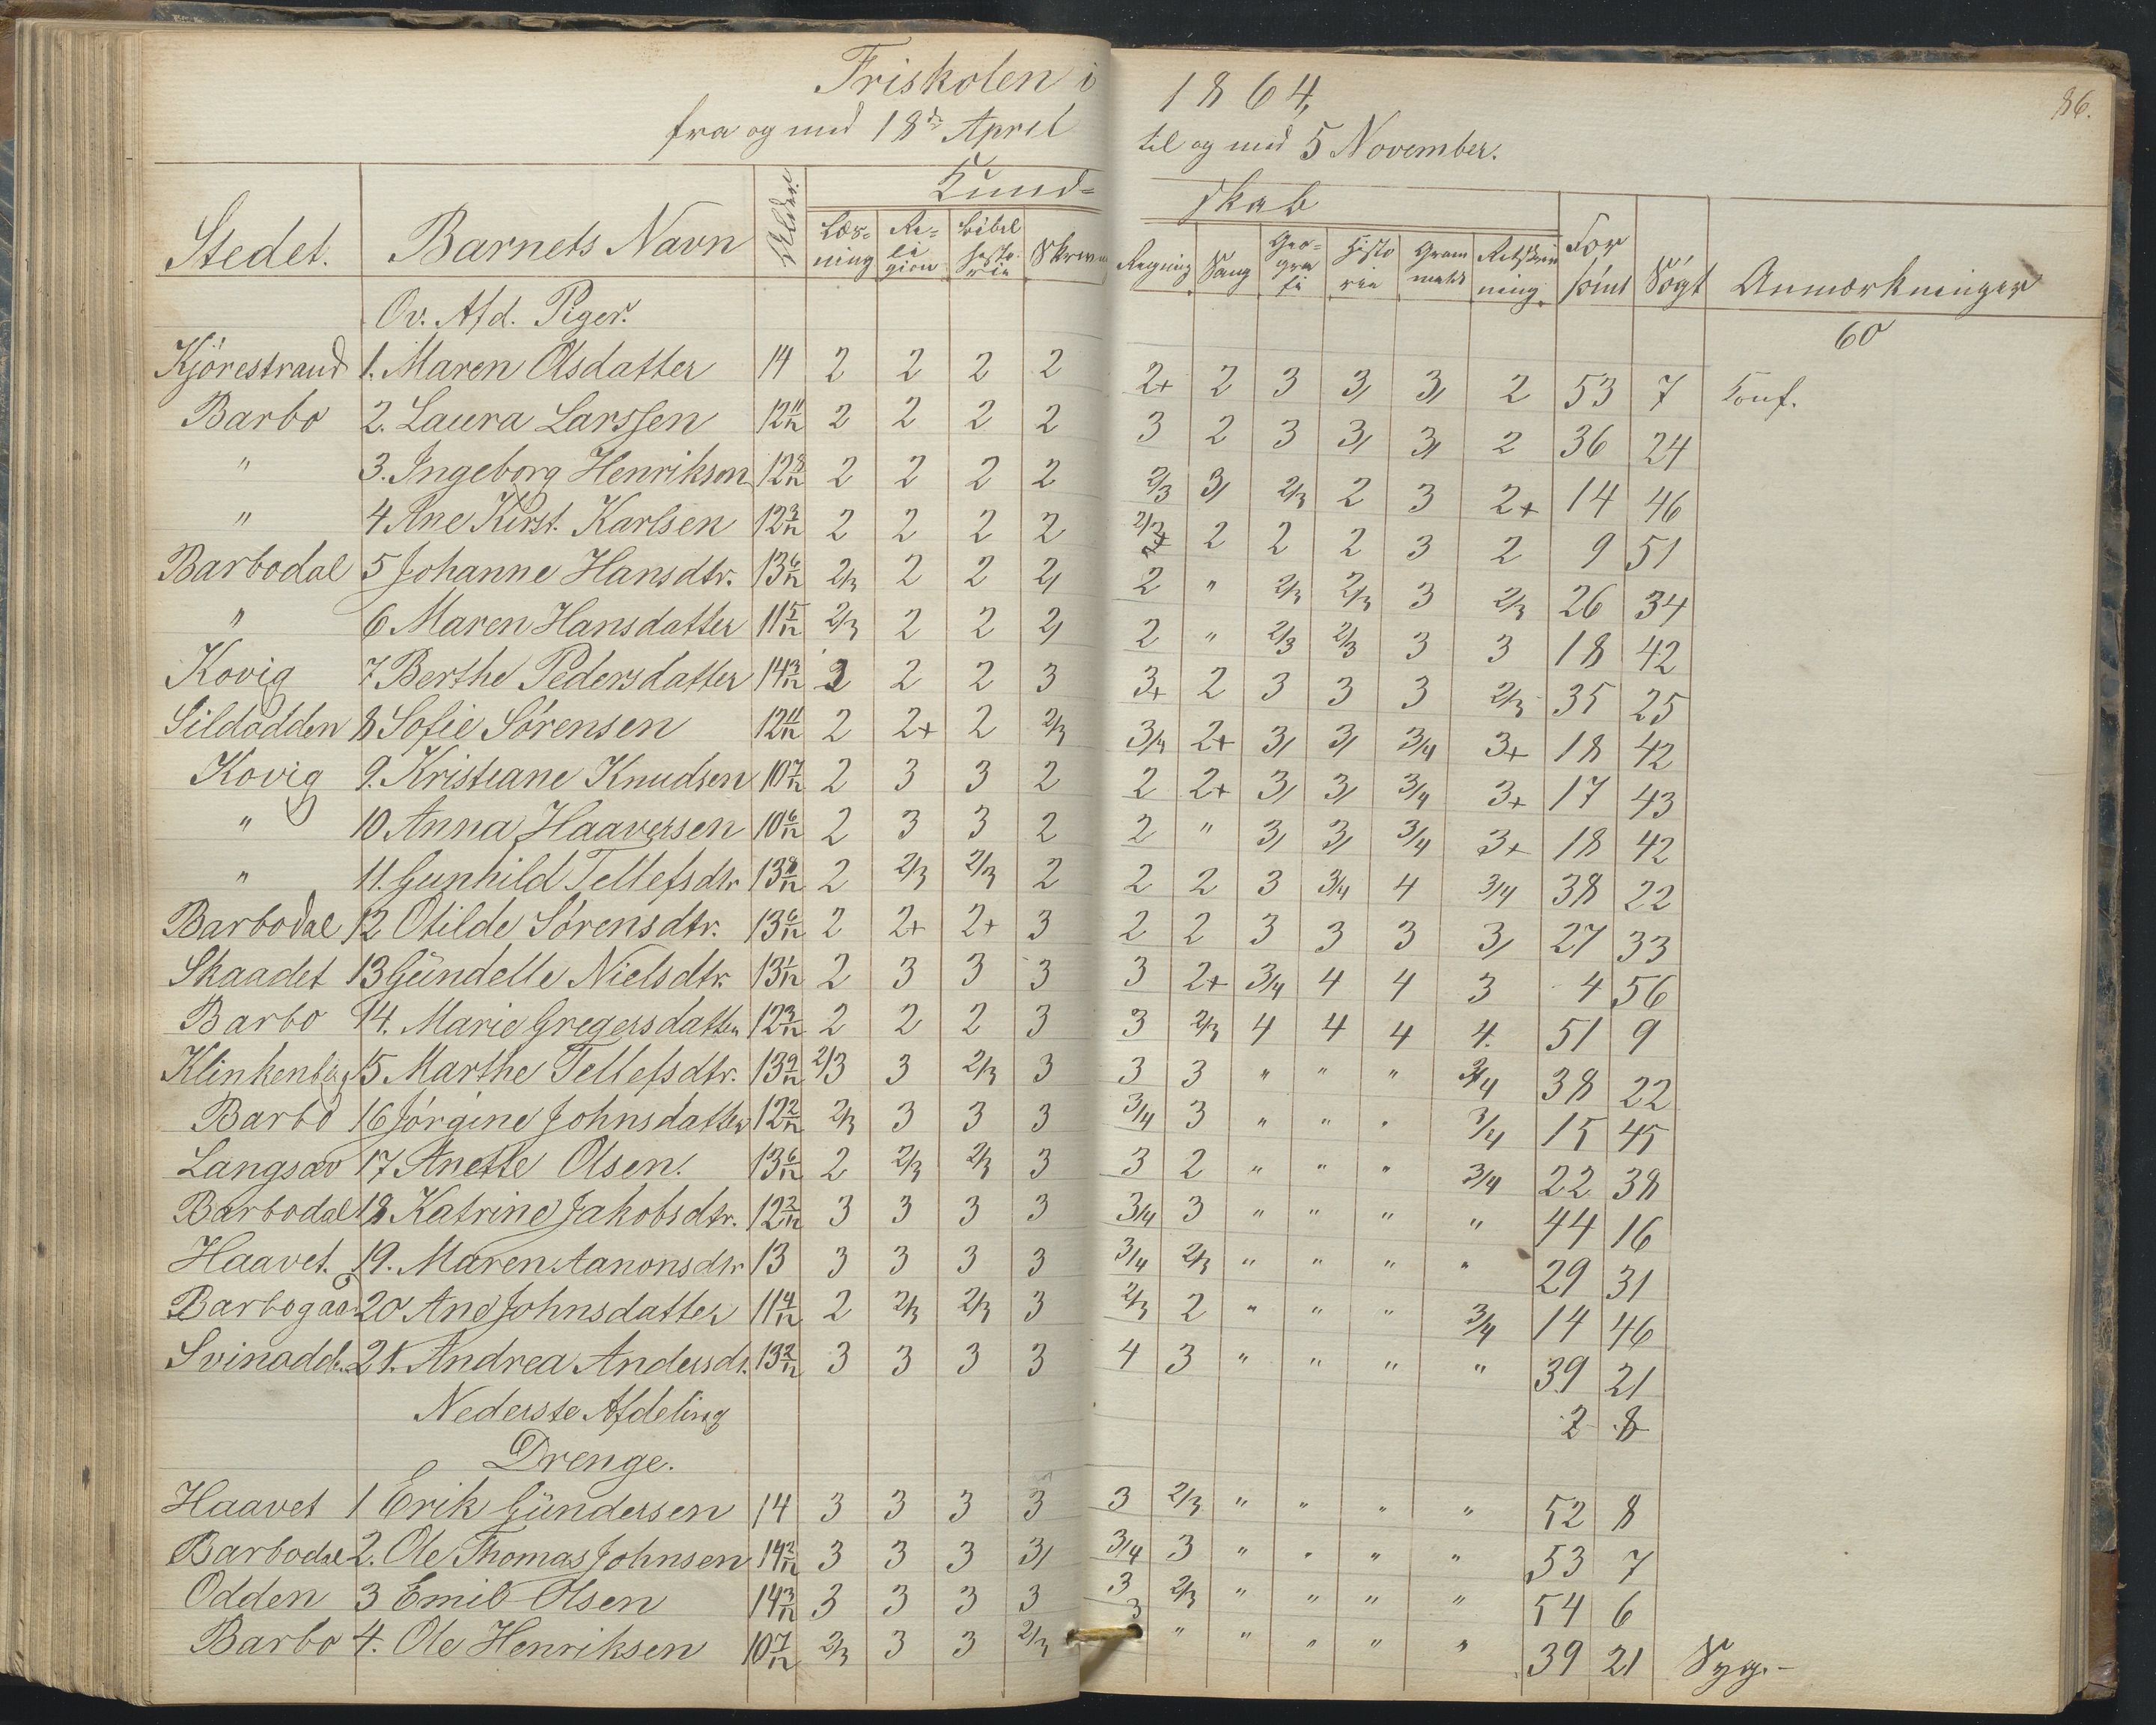 86.
Friskolen i 1864,
fra og med 18de April til og med 5 November.
Stedet. Barnets Navn Alder. Kund= skab Forsömt Sögt Anmærkninger
Læs=ning Re=ligion Bibelhistorie Skrivn Regning Sang Geo=grafi Historie Grammatik Retskrivning
Öv. Afd. Piger. 60
Kjörestrand 1. Maren Olsdatter 14 2 2 2 2 2+ 2 3 3/ 3/ 2 53 7 Konf.
Barbo 2. Laura Larssen 12 11/12 2 2 2 2 3 2 3 3/ 3/ 2 36 24
" 3. Ingeborg Henriksen 12 8/12 2 2 2 2 2/3 3/ 2/3 2 3 2+ 14 46
" 4 Ane Kirst. Karlsen 12 3/12 2 2 2 2 2/3 2 2 2 3 2 9 51
Barbodal 5 Johanne Hansdtr. 13 6/12 2/3 2 2 2/ 2 " 2/3 2/3 3 2/3 26 34
" 6 Maren Hansdatter 11 5/12 2/3 2 2 2/ 2 " 2/3 2/3 3 3 18 42
Kovig 7 Berthe Pedersdatter 14 3/12 2 2 2 3 3+ 2 3 3 3 2/3 35 25
Sildodden 8 Sofie Sörensen 12 11/12 2 2+ 2 2/3 3/4 2+ 3/ 3/ 3/4 3+ 18 42
Kovig 9. Kristiane Knudsen 10 7/12 2 3 3 2 2 2+ 3/ 3/ 3/4 3+ 17 43
" 10 Anna Haaversen 10 6/12 2 3 3 2 2 " 3/ 3/ 3/4 3+ 18 42
" 11. Gunhild Tellefsdtr 13 8/12 2 2/3 2/3 2 2 2 3 3/4 4 3/4 38 22
Barbodal 12 Otilde Sörensdtr. 13 6/12 2 2+ 2+ 3 2 2 3 3 3 3/ 27 33
Skaadet 13 Gündelle Nielsdtr. 13 1/12 2 3 3 3 3 2+ 3/4 4 4 3 4 56
Barbo 14. Marie Gregersdatter 12 3/12 2 2 2 3 3 2/3 4 4 4 4. 51 9
Klinkenberg 15 Marthe Tellefsdtr. 13 9/12 2/3 3 2/3 3 3 3 " " " 3/4 38 22
Barbo 16 Jörgine Johnsdatter 12 2/12 2/3 3 3 3 3/4 3 " " " 3/4 15 45
Langsæv 17 Anette Olsen. 13 6/12 2 2/3 2/3 3 3 2 " " " 3/4 22 38
Barbodal 18 Katrine Jakobsdtr. 12 2/12 3 3 3 3 3/4 3 " " " " 44 16
Haavet. 19. Maren Aanonsdtr 13 3 3 3 3 3/4 2/3 " " " " 29 31
Barbogaar 20 Ane Johnsdatter 11 4/12 2 2/3 2/3 3 2/3 2 " " " 3/4 14 46
Svinodd. 21. Andrea Andersdt. 13 2/12 3 3 3 3 4 3 " " " " 39 21
Nederste Afdeling 2 8
Drenge.
Haavet 1 Erik Gündersen 14 3 3 3 3 3 2/3 " " " " 52 8
Barbodal 2. Ole Thomas Johnsen 14 2/12 3 3 3 3/ 3/4 3 " " " " 53 7
Odden 3 Emil Olsen 14 3/12 3 3 3 3 3 2/3 " " " " 54 6
Barbo 4. Ole Henriksen 10 7/12 2/3 3 3 2/3 3 " " " " " 39 21 Syg.-